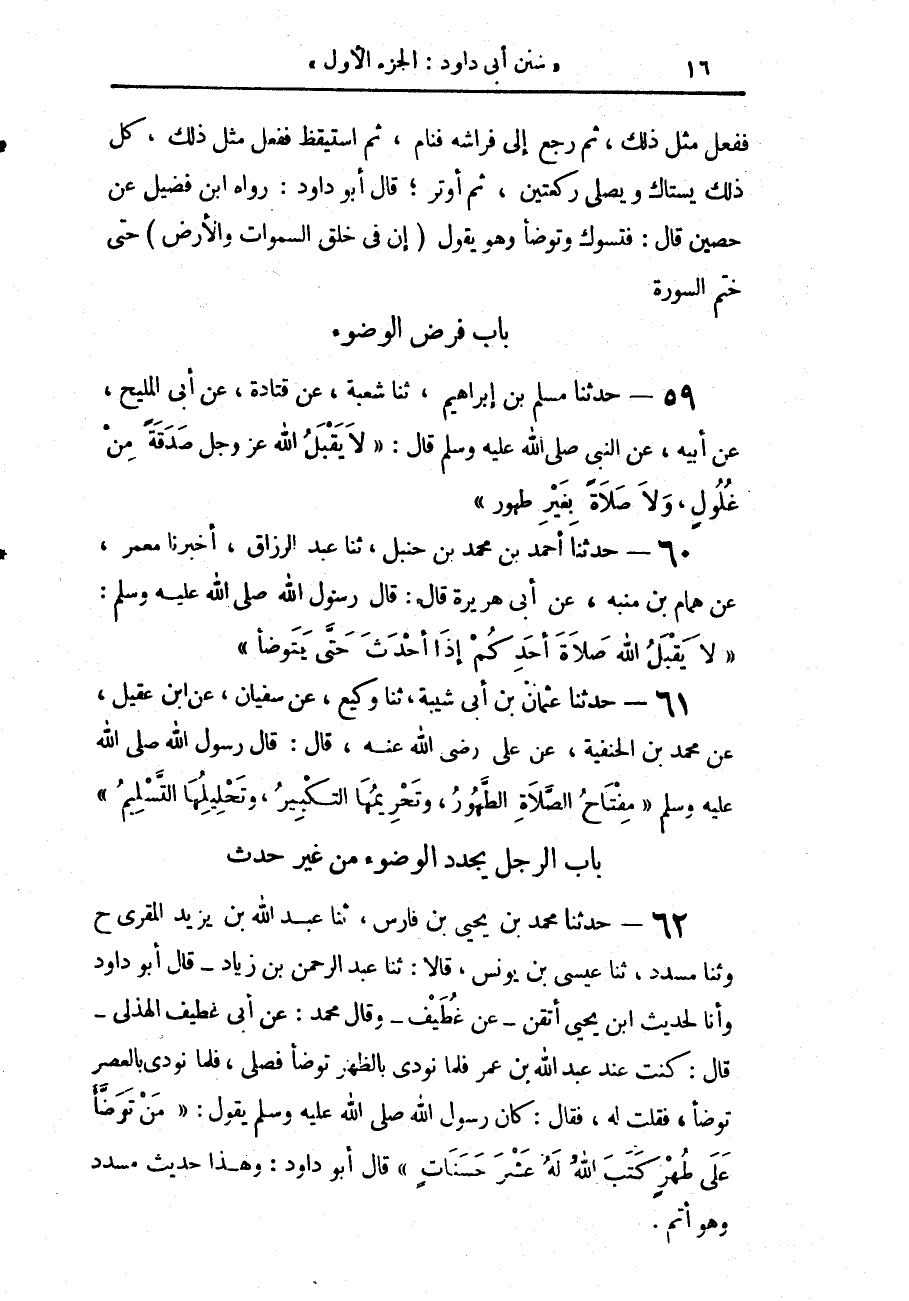 ١٦ « سنن أبى داود : الجزء الأول »
ففعل مثل ذلك ، ثم رجع إلى فراشه فنام ، ثم استيقظ ففعل مثل ذلك ، كل
ذلك يستاك ويصلى ركعتين ، ثم أوتر ؛ قال أبو داود : رواه ابن فضيل عن
حصين قال : فتسوك وتوضأ وهو يقول ( إن فى خلق السموات والأرض ) حتى
ختم السورة
باب فرض الوضوء
٥٩ — حدثنا مسلم بن إبراهيم ، ثنا شعبة ، عن قتادة ، عن أبى المليح ،
عن أبيه ، عن النبى صلى الله عليه وسلم قال : « لاَ يَقْبَلُ الله عز وجل صَدَقَةً مِنْ
غُلُولٍ ، وَلاَ صَلاَةً بِغَيْرِ طهور »
٦٠ — حدثنا أحمد بن محمد بن حنبل ، ثنا عبد الرزاق ، أخبرنا معمر ،
عن همام بن منبه ، عن أبى هريرة قال : قال رسول الله صلى الله عليه وسلم :
« لاَ يَقْبَلُ الله صَلاَةَ أَحَدِكُمْ إذَا أحْدَثَ حَتَّى يَتَوضأ »
٦١ — حدثنا عثمان بن أبى شيبة ، ثنا وكيع ، عن سفيان ، عن ابن عقيل ،
عن محمد بن الحنفية ، عن على رضى الله عنه ، قال : قال رسول الله صلى الله
عليه وسلم « مِفْتَاحُ الصَّلاَةِ الطَّهُورُ ، وتَحْرِيمُهَا التكْبِيرُ ، وتَحْلِيلُهَا التَّسْلِيمُ »
باب الرجل يجدد الوضوء من غير حدث
٦٢ — حدثنا محمد بن يحيى بن فارس ، ثنا عبد الله بن يزيد المقرى ح
وثنا مسدد ، ثنا عيسى بن يونس ، قالا : ثنا عبد الرحمن بن زياد — قال أبو داود
وأنا لحديث ابن يحيى أتقن — عن غُطَيْف — وقال محمد : عن أبى غطيف الهذلى —
قال : كنت عند عبد الله بن عمر فلما نودى بالظهر توضأ فصلى ، فلما نودى بالعصر
توضأ ، فقلت له ، فقال : كان رسول الله صلى الله عليه وسلم يقول : « مَنْ تَوَضَّأَ
عَلَى طُهْرٍ كَتَبَ اللهُ لَهُ عَشْرَ حَسَنَاتٍ » قال أبو داود : وهذا حديث مسدد
وهو أتم .